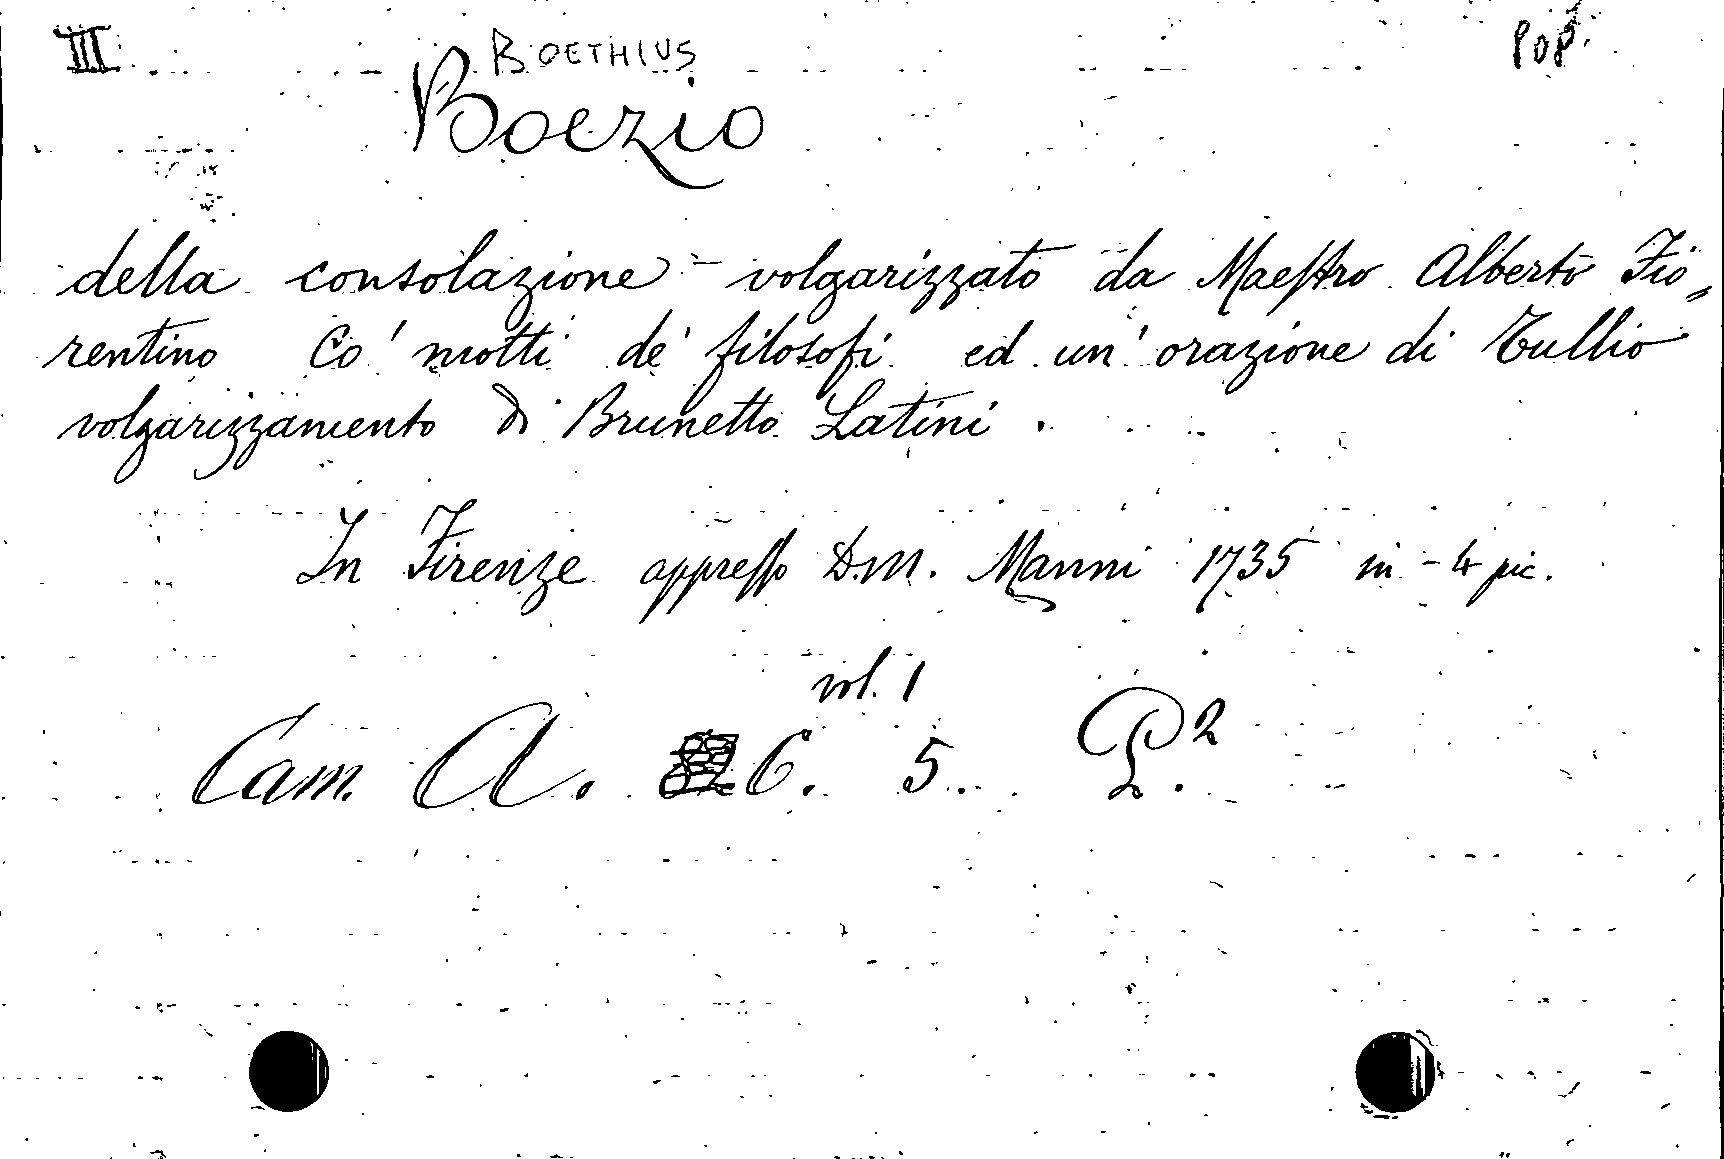 III
BOETHIUS
POP.
Boezio
della consolazione - volgarizzato da Maestro Alberto Fio„
rentino Co' motti de' filosofi ed un' orazione di Tullio
volgarizzamento di Brunetto Latini.
In Firenze appresso D.M. Manni 1735 in-4 pic.
vol. 1
Cam. A. C. 5. P2